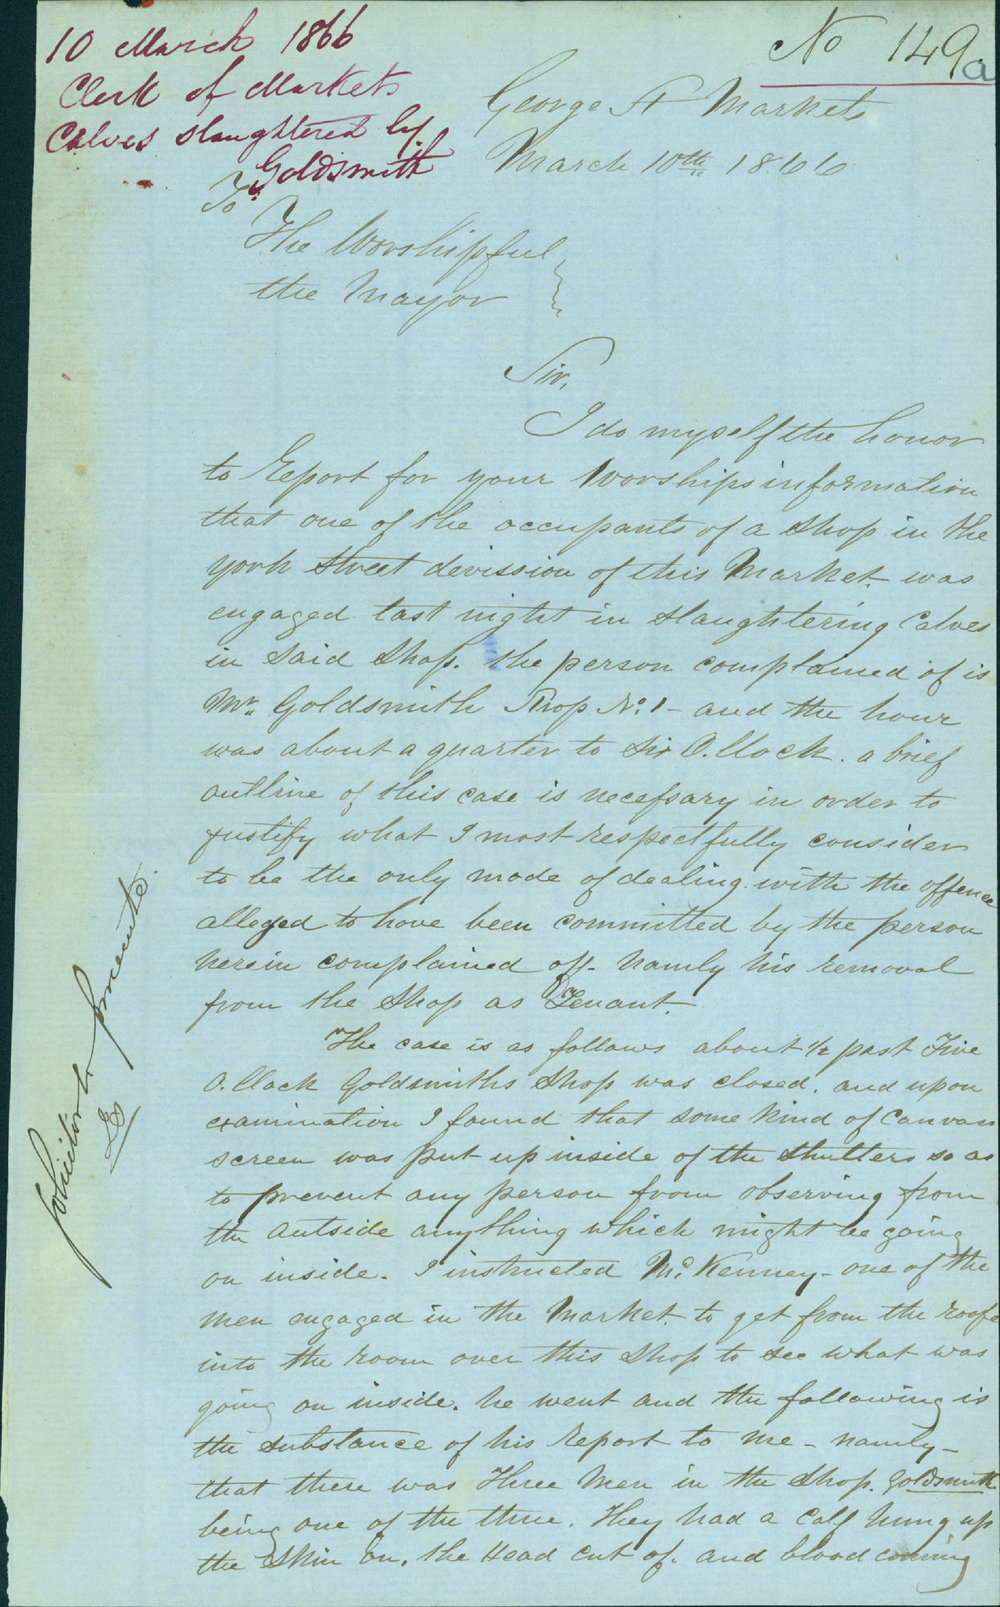 10 March 1866
Clerk of Markets
Calves slaughtered by
Goldsmith
No 149a
George St Markets
March 10th 1866
To
The Worshipful
the Mayor
Sir,
I do myself the honor
to Report for your Worships information
that one of the occupants of a Shop in the
York Street devission of this Market was
engaged last night in slaughtering Calves
in said Shop. the person complained of is
Mr. Goldsmith Shop No. 1 - and the hour
was about a quarter to Six O.Clock. a brief
outline of this case is necessary in order to
justify what I most respectfully consider
to be the only mode of dealing with the offence
alleged to have been committed by the person
herein complained off - Namly his removal
from the Shop as Tenant.
The case is as follows about 1/2 past Five
O.Clock Goldsmiths Shop was closed. and upon
examination I found that some kind of Canvas
screen was put up inside of the Shutters so as
to prevent any person from observing from
the outside anything which might be going
on inside. I instructed Mc. Kenney - one of the
men engaged in the Market to get from the roofe
into the room over this Shop to see what was
going on inside. he went and the following is
the substance of his Report to me - namly -
that there was Three Men in the Shop. Goldsmith
being one of the three. They had a Calf hung up
the Skin on, the Head cut of. and blood coming
Solicitor to prosecute.